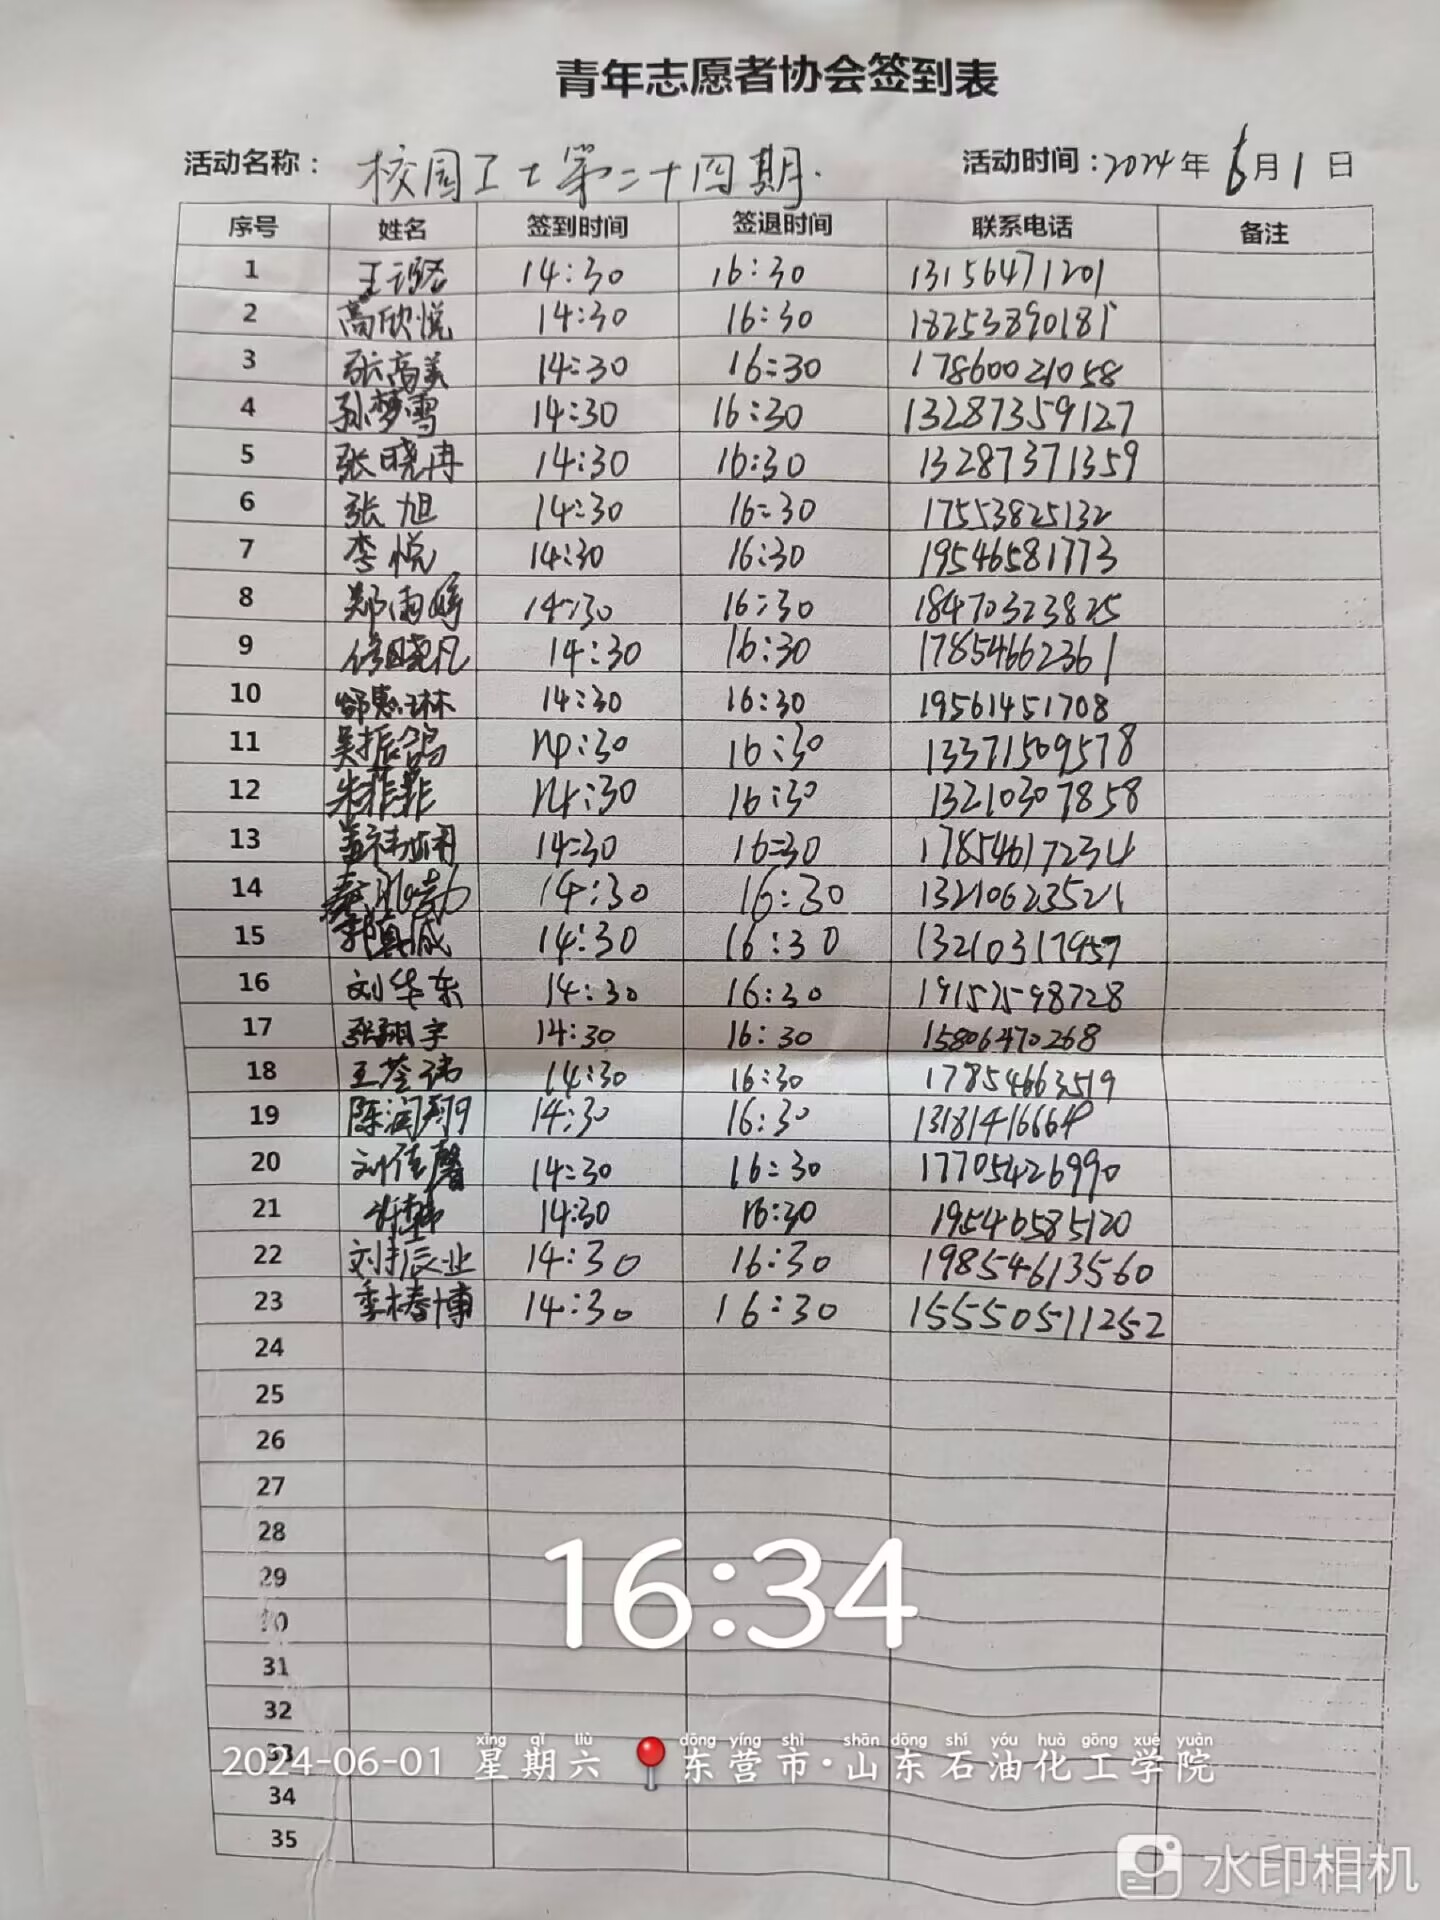 青年志愿者协会签到表
活动名称： 校园卫士第二十四期. 活动时间：2024年 6月1日
序号 姓名 签到时间 签退时间 联系电话 备注
1 14:30 16:30 13156471201
2 高欣悦 14:30 16:30 18253890181
3 张高美 14:30 16:30 17860021058
4 孙梦雪 14:30 16:30 13287359127
5 张晓冉 14:30 16:30 13287371359
6 张旭 14:30 16:30 17553825132
7 李悦 14:30 16:30 19546581773
8 郑雨婷 14:30 16:30 18470323825
9 修晓凡 14:30 16:30 17854662361
10 邹惠琳 14:30 16:30 19561451708
11 吴振鸽 14:30 16:30 13371509578
12 朱菲菲 14:30 16:30 13210307858
13 14:30 16:30 17854617234
14 14:30 16:30 13210623521
15 郭真诚 14:30 16:30 13210317957
16 刘华东 14:30 16:30 19157598728
17 张翔宇 14:30 16:30 15806470268
18 王荃祎 14:30 16:30 17854663519
19 陈润翔 14:30 16:30
20 刘佳馨 14:30 16:30 17705426990
21 14:30 16:30 19546585120
22 刘振业 14:30 16:30 19854613560
23 季椿博 14:30 16:30 15550511252
24
25
26
27
28
29
30
31
32
33
34
35
16:34
xīng qī liù dōng yíng shì shān dōng shí yóu huà gōng xué yuàn
2024-06-01 星期六 东营市·山东石油化工学院
水印相机